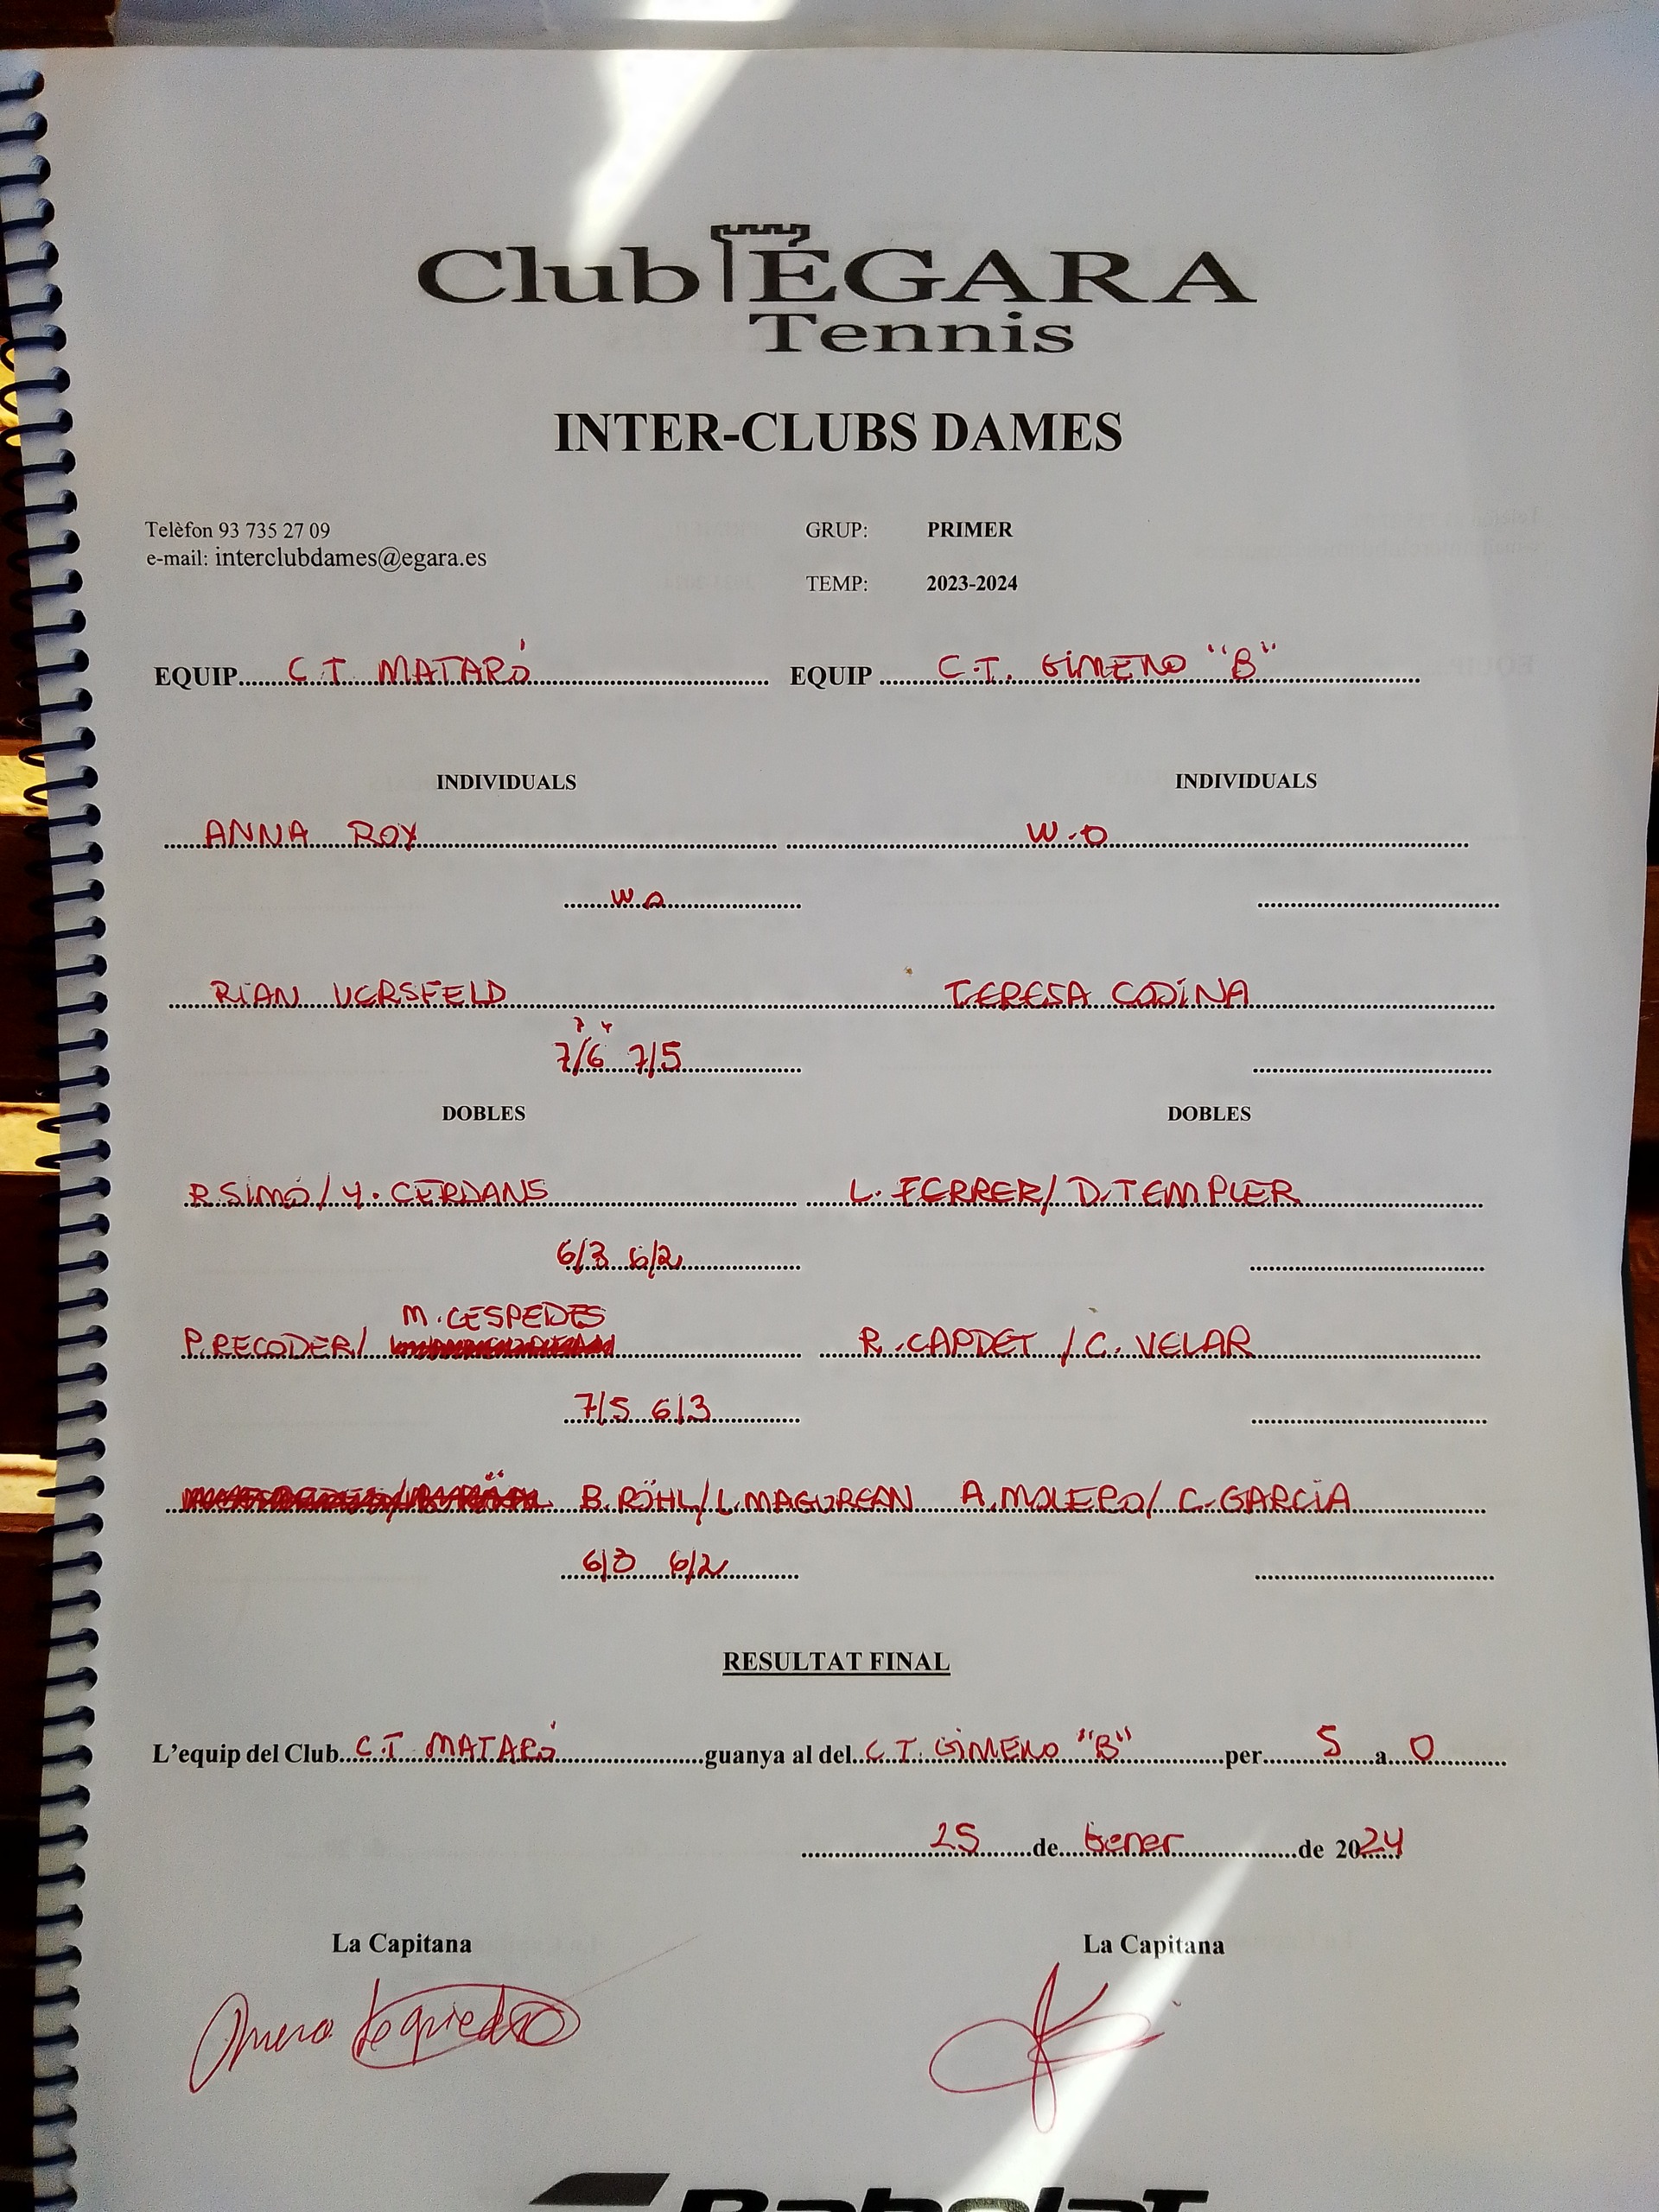 Club EGARA
Tennis
INTER-CLUBS DAMES
Telèfon 93 735 27 09
e-mail: interclubdames@egara.es
GRUP: PRIMER
TEMP: 2023-2024
EQUIP C.T. MATARÓ EQUIP C.T. GIMENO "B"
INDIVIDUALS INDIVIDUALS
ANNA ROY W.O
WO
RIAN VERSFELD TERESA CODINA
7 4
7/6 7/5
DOBLES DOBLES
R.SIMÓ/Y. CERDANS L. FERRER/D.TEMPLER
6/3 6/2
M. CESPEDES
P.RECODER/ R.CAPDET/C. VELAR
7/5 6/3
B.RÖHL/L.MAGUREAN A.MOLERO/C.GARCÍA
6/3 6/2
RESULTAT FINAL
L'equip del Club C.T. MATARÓ guanya al del C.T. GIMENO "B" per 5 a 0
25 de Gener de 2024
La Capitana La Capitana
Babolat